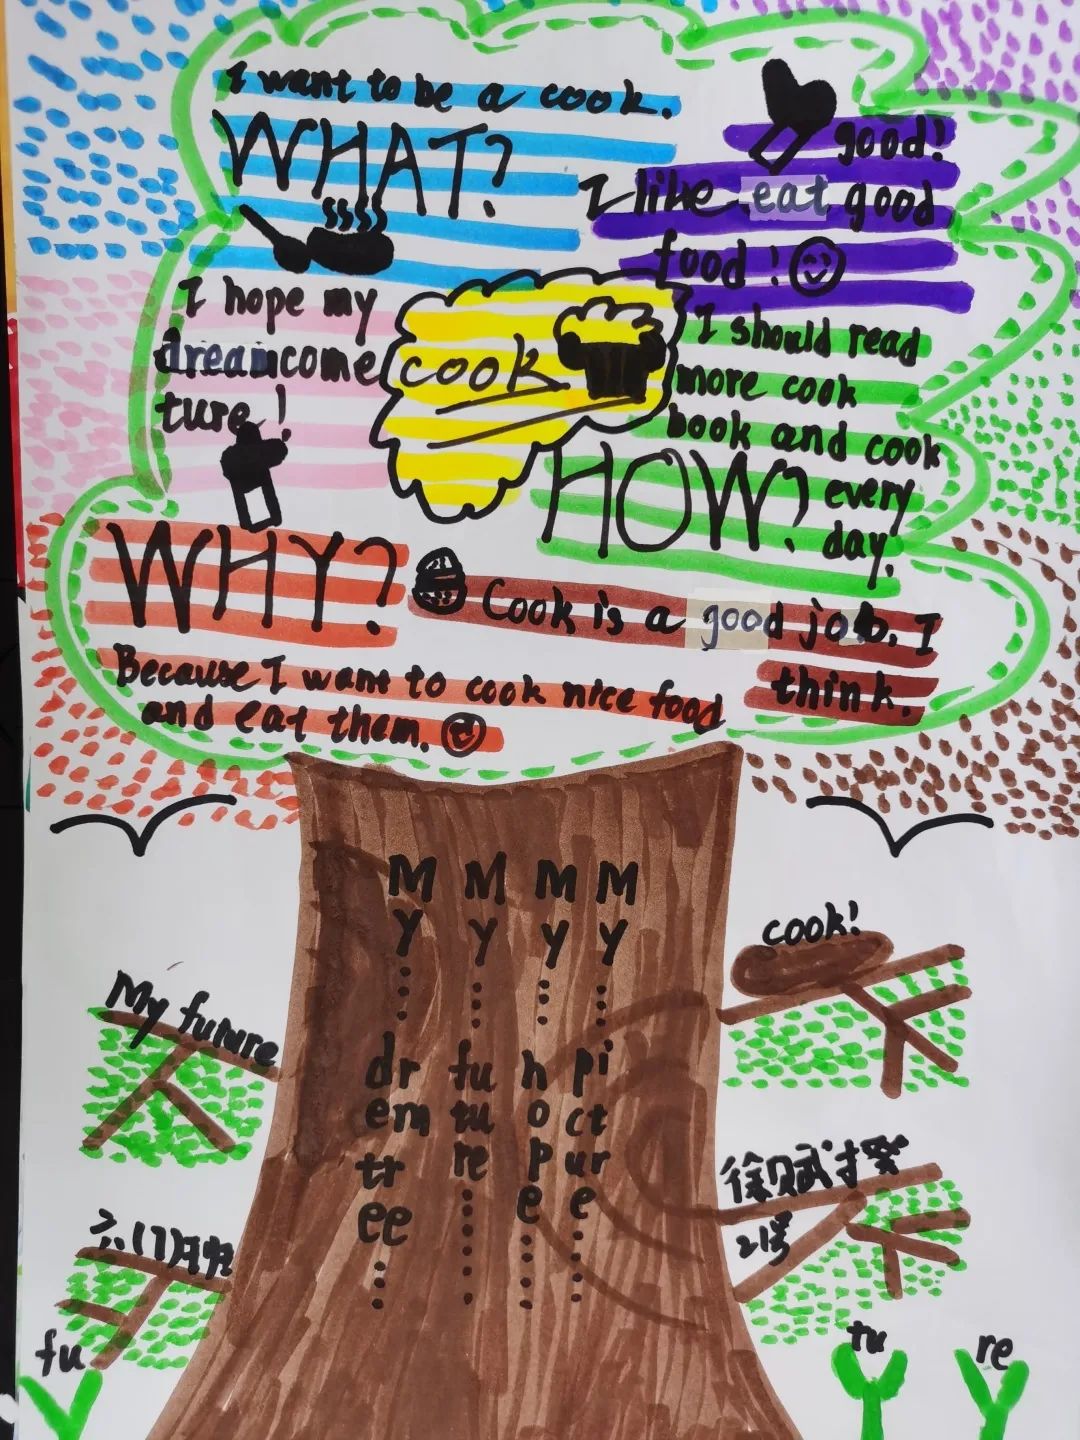 I want to be a cook.
WHAT?
good!
I like eat good
food!
I hope my
dreamcome
ture!
cook
I should read
more cook
book and cook
every
day.
HOW?
WHY?
Cook is a good job. I
think.
Because I want to cook nice food
and eat them.
My drem tree
My future
My hope
My picture
My future
cook!
六(7)班
徐赋
21号
fu
tu
re